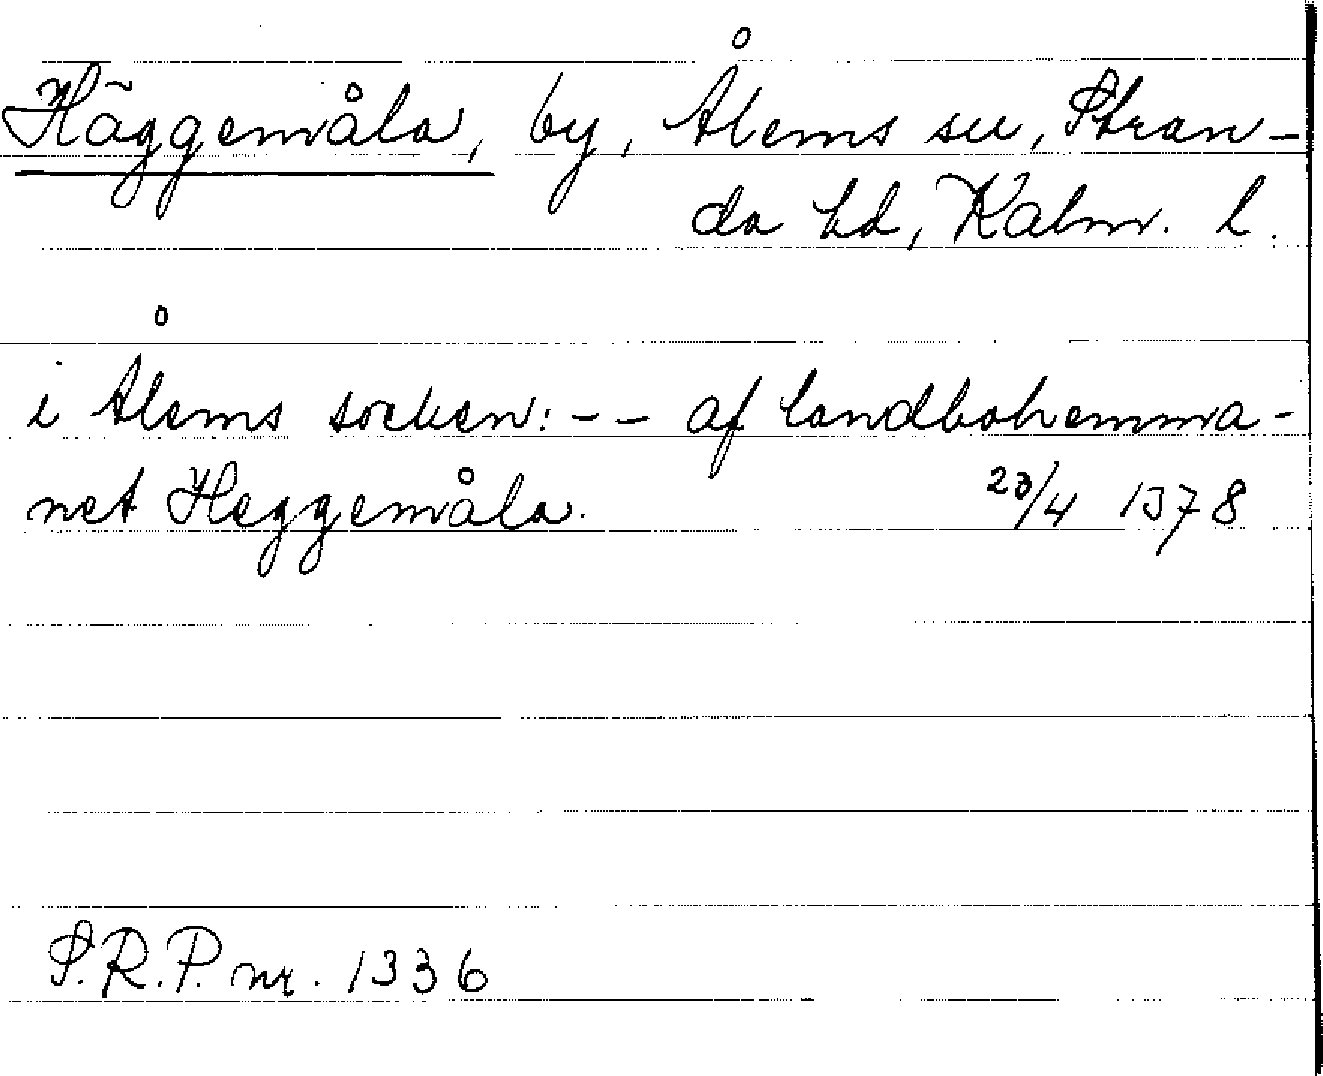 Häggemåla, by, Ålems sn, Stran-
da hd, Kalm. l.
i Ålems socken: -- af landbohemma-
net Heggemåla. 23/4 1378
S.R.P. nr. 1336